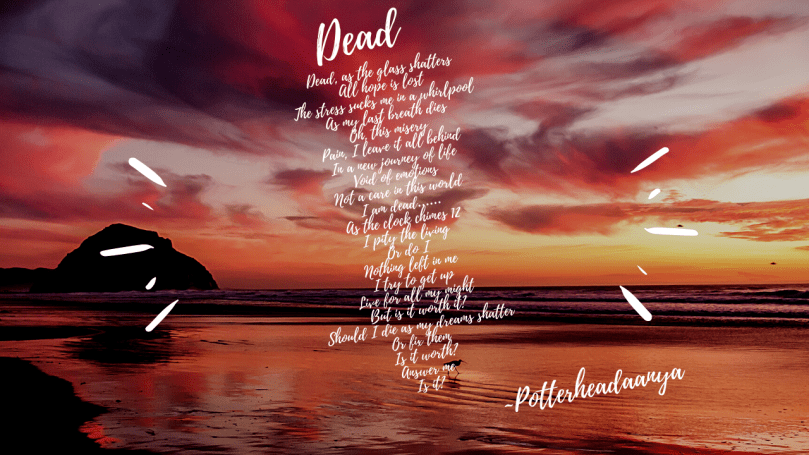 Dead
Dead, as the glass shatters
All hope is lost
The stress sucks me in a whirlpool
As my last breath dies
Oh, this misery
Pain, I leave it all behind
In a new journey of life
Void of emotions
Not a care in this world
I am dead......
As the clock chimes 12
I pity the living
Or do I
Nothing left in me
I try to get up
Live for all my might
But is it worth it?
Should I die as my dreams shatter
Or fix them
Is it worth?
Answer me
Is it?
~Potterheadaanya